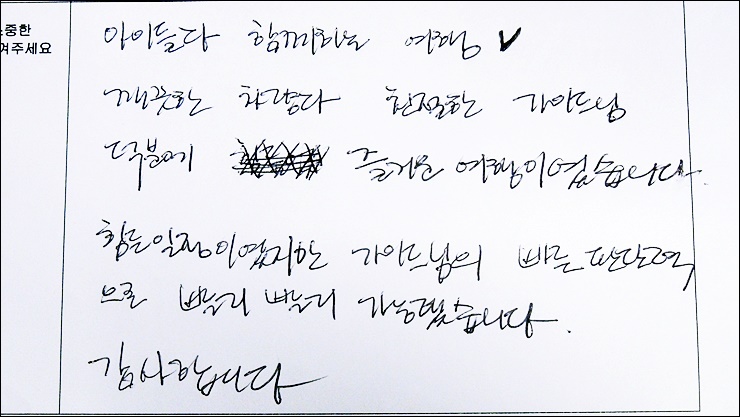 소중한
여주세요
아이들과 함께하는 여행 ✓
깨끗한 차량과 친절한 가이드님
덕분에 즐거운 여행이였습니다.
힘든일정이였지만 가이드님의 빠른판단력
으로 빨리 빨리 가능했습니다.
감사합니다